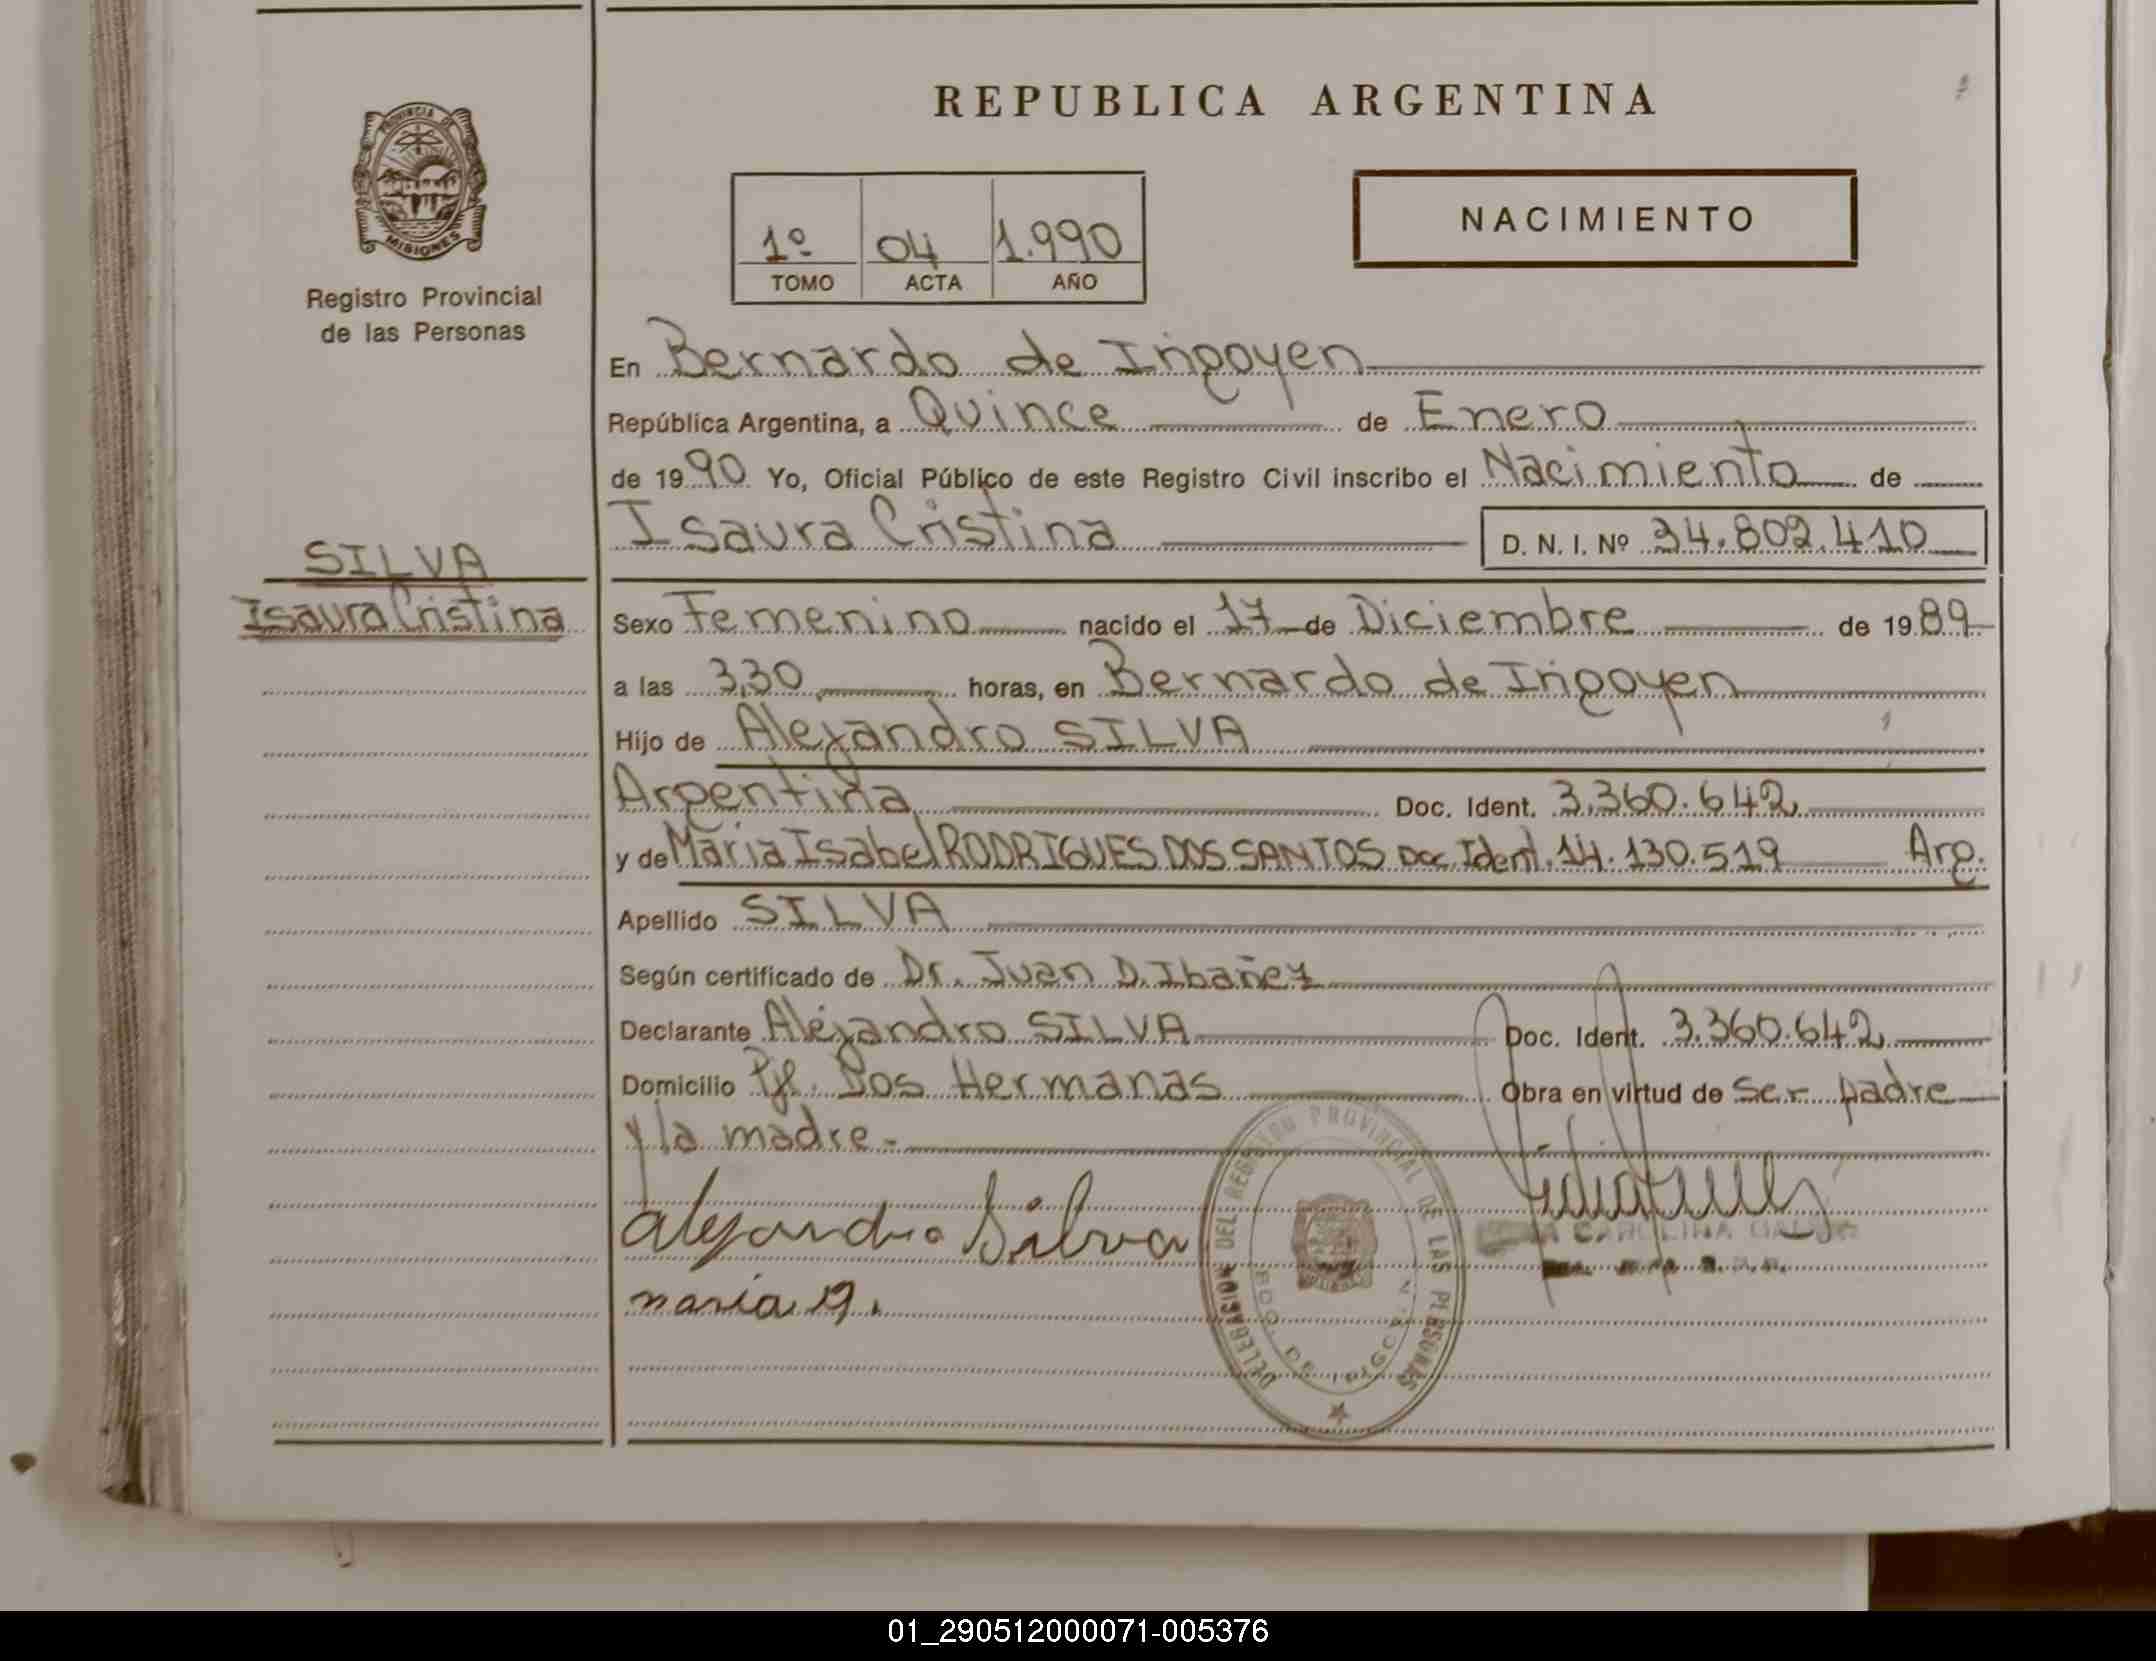 REPUBLICA ARGENTINA
PROVINCIA DE
MISIONES
Registro Provincial
de las Personas
1º 04 1.990
TOMO ACTA AÑO
NACIMIENTO
En Bernardo de Irigoyen
República Argentina, a Quince de Enero
de 1990 Yo, Oficial Público de este Registro Civil inscribo el Nacimiento de
Isaura Cristina D. N. I. Nº 34.802.410
SILVA
Isaura Cristina
Sexo Femenino nacido el 17 de Diciembre de 1989
a las 3,30 horas, en Bernardo de Irigoyen
Hijo de Alejandro SILVA
Argentina Doc. Ident. 3.360.642
y de Maria Isabel RODRIGUES DOS SANTOS Doc Ident. 14.130.519 Arg.
Apellido SILVA
Según certificado de Dr. Juan D. Ibañez
Declarante Alejandro SILVA Doc. Ident. 3.360.642
Domicilio Pje. Dos Hermanas Obra en virtud de ser padre
y la madre.-
Alejandro Silva
maria
DELEGACION DEL REGISTRO PROVINCIAL DE LAS PERSONAS
BDO. DE IRIGOYEN
CAROLINA
01_290512000071-005376